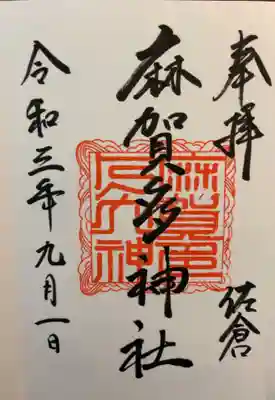 奉拝
佐倉
麻賀多神社
令和三年九月一日